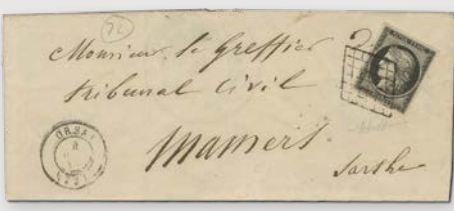 72
Monsieur le Greffier
tribunal Civil
Mamers
Sarthe
ORSAY